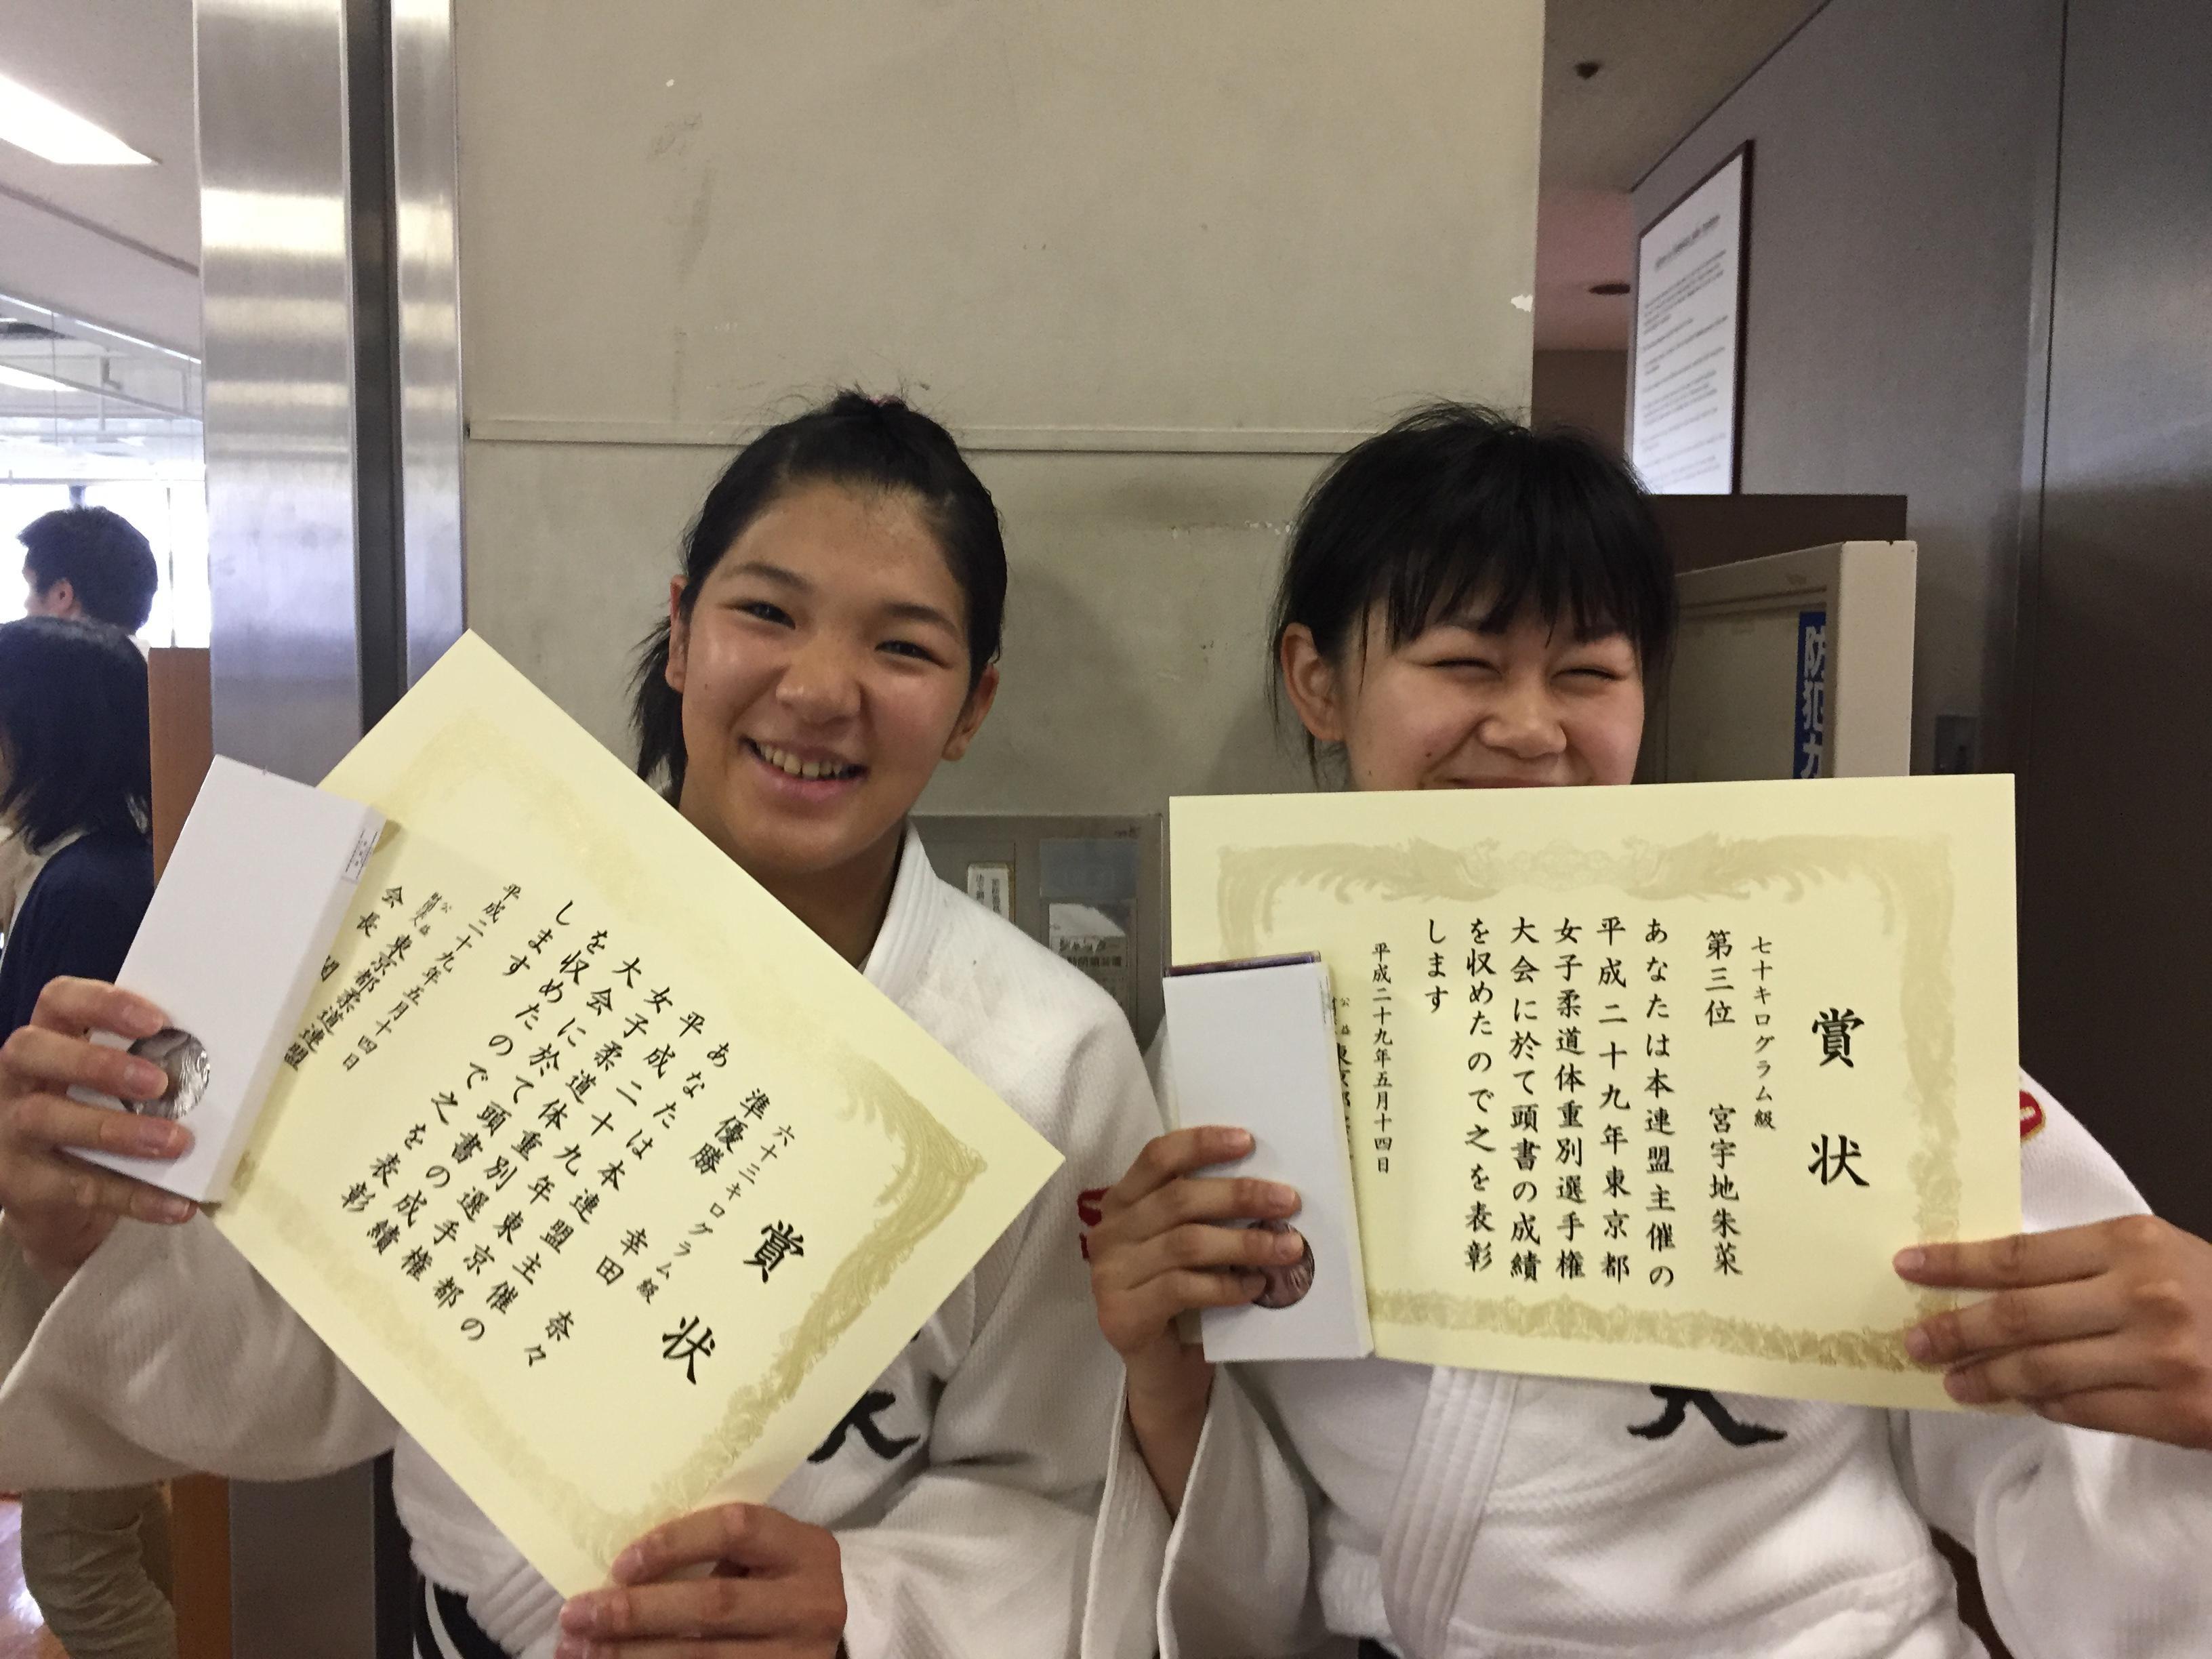 賞状
六十三キログラム級
準優勝 幸田 奈々
あなたは本連盟主催の
平成二十九年東京都
女子柔道体重別選手権
大会に於て頭書の成績
を収めたので之を表彰
します
平成二十九年五月十四日
公益財団法人 東京都柔道連盟
会長
賞状
七十キログラム級
第三位 宮宇地朱菜
あなたは本連盟主催の
平成二十九年東京都
女子柔道体重別選手権
大会に於て頭書の成績
を収めたので之を表彰
します
平成二十九年五月十四日
公益
防犯カ